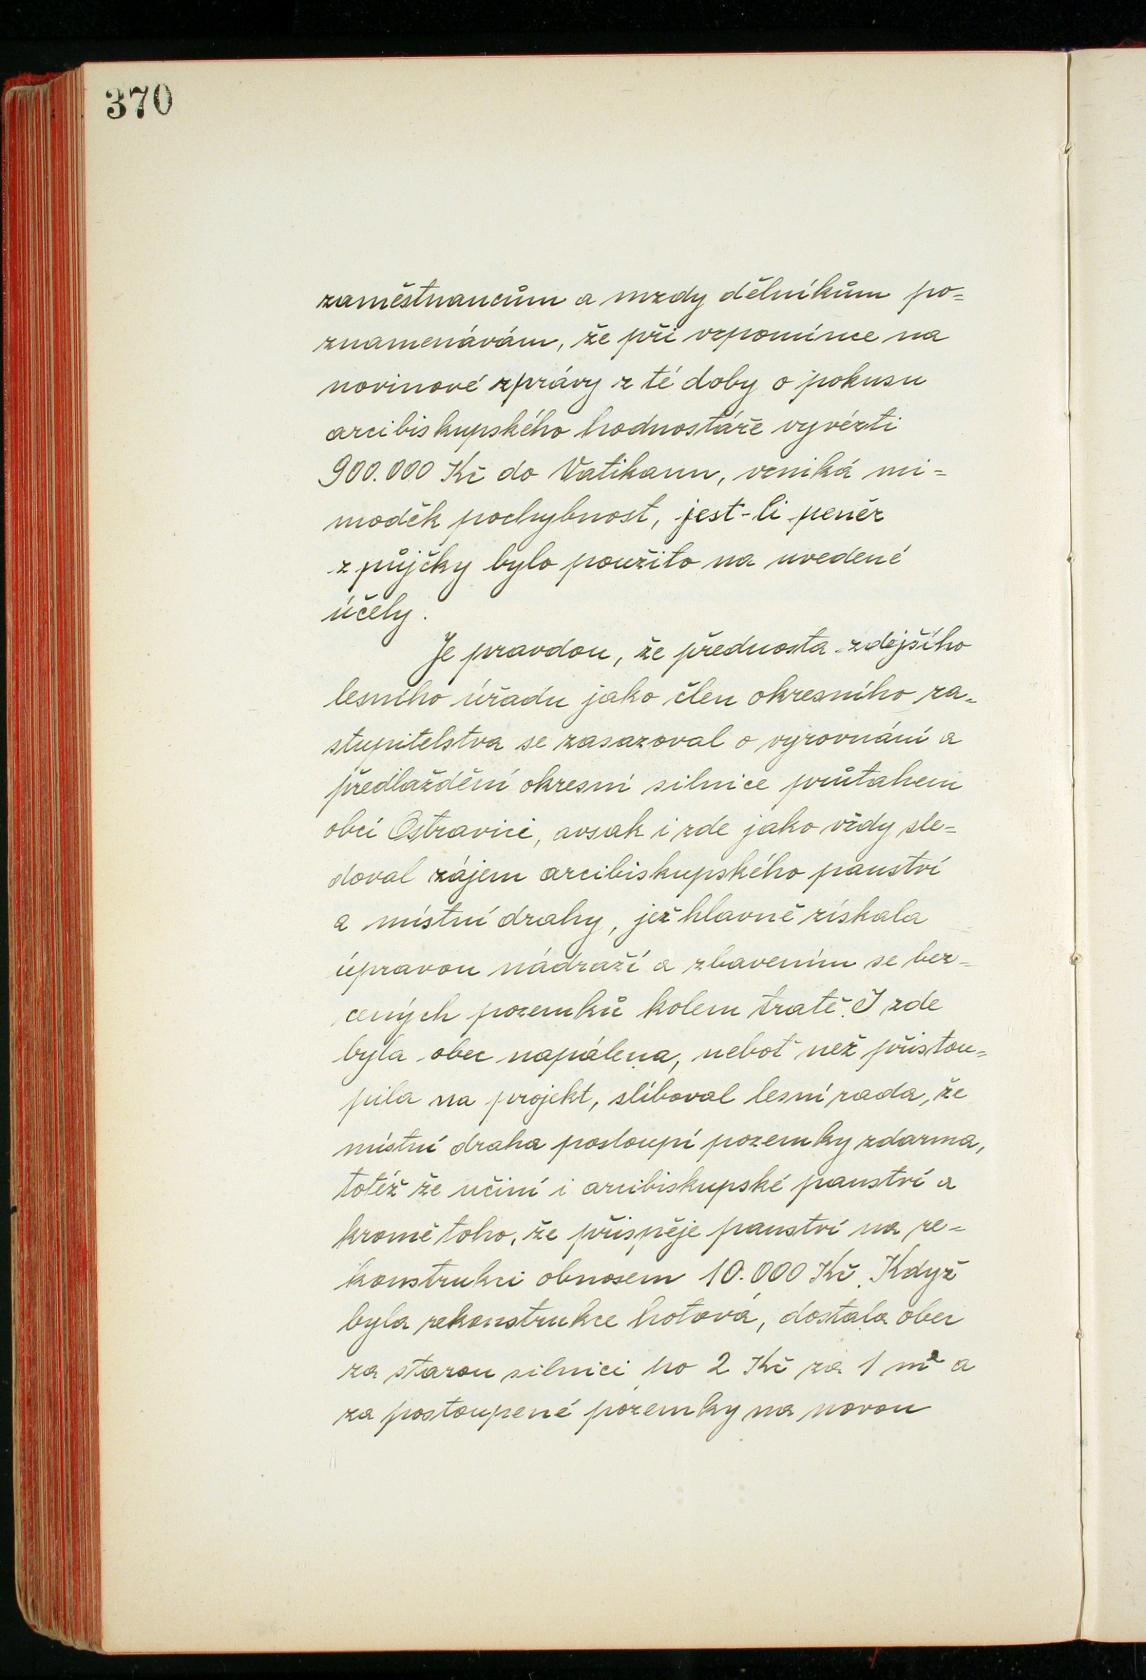 370
zaměstnancům a mzdy dělníkům po=
znamenávám, že při vzpomínce na
novinové zprávy z té doby o pokusu
arcibiskupského hodnostáře vyvézti
900.000 Kč do Vatikanu, vzniká mi=
moděk pochybnost, jest-li peněz
z půjčky bylo použito na uvedené
účely.
Je pravdou, že přednosta zdejšího
lesního úřadu jako člen okresního za=
stupitelstva se zasazoval o vyrovnání a
předláždění okresní silnice průtahem
obcí Ostravicí, avsak i zde jako vždy sle=
doval zájem arcibiskupského panství
a místní drahy, jež hlavně získala
úpravou nádraží a zbavením se bez=
cených pozemků kolem tratě. I zde
byla obec napálena, neboť než přistou=
pila na projekt, sliboval lesní rada, že
místní draha postoupí pozemky zdarma,
totéž že učiní i arcibiskupské panství a
kromě toho, že přispěje panství na re=
konstrukci obnosem 10.000 Kč. Když
byla rekonstrukce hotová, dostala obec
za starou silnici po 2 Kč za 1 m² a
za postoupené pozemky na novou